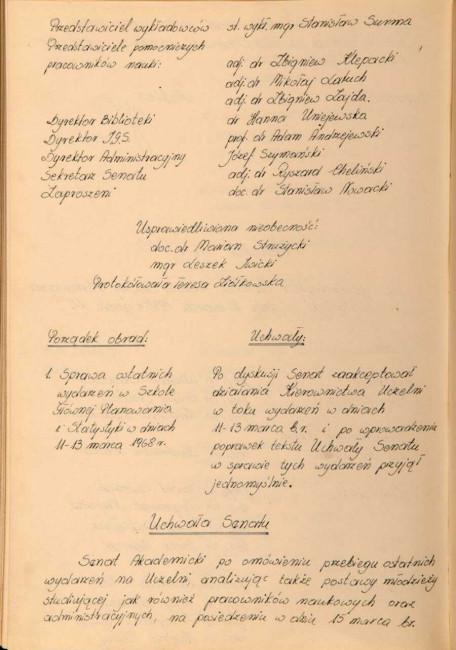 Przedstawiciel wykładowców st. wykł. mgr Stanisław Surma
Przedstawiciele pomocniczych
pracowników nauki: adj. dr Zbigniew Klepacki
adj. dr Mikołaj Latuch
adj. dr Zbigniew Zajda.
Dyrektor Biblioteki dr Hanna Uniejewska
Dyrektor I.G.S. prof. dr Adam Andrzejewski
Dyrektor Administracyjny Józef Szymański
Sekretarz Senatu adj. dr Ryszard Cheliński
Zaproszeni doc. dr Stanisław Nowacki
Usprawiedliwiona nieobecność:
doc. dr Marian Strużycki
mgr Leszek Iwicki
Protokółowała Teresa Ziółkowska
Porządek obrad:
1. Sprawa ostatnich
wydarzeń w Szkole
Głównej Planowania
i Statystyki w dniach
11-13 marca 1968 r.
Uchwały:
Po dyskusji Senat zaakceptował
działania Kierownictwa Uczelni
w toku wydarzeń w dniach
11-13 marca b.r. i po wprowadzeniu
poprawek tekstu Uchwały Senatu
w sprawie tych wydarzeń przyjął
jednomyślnie.
Uchwała Senatu
Senat Akademicki po omówieniu przebiegu ostatnich
wydarzeń na Uczelni, analizując także postawy młodzieży
studiującej jak również pracowników naukowych oraz
administracyjnych, na posiedzeniu w dniu 15 marca br.